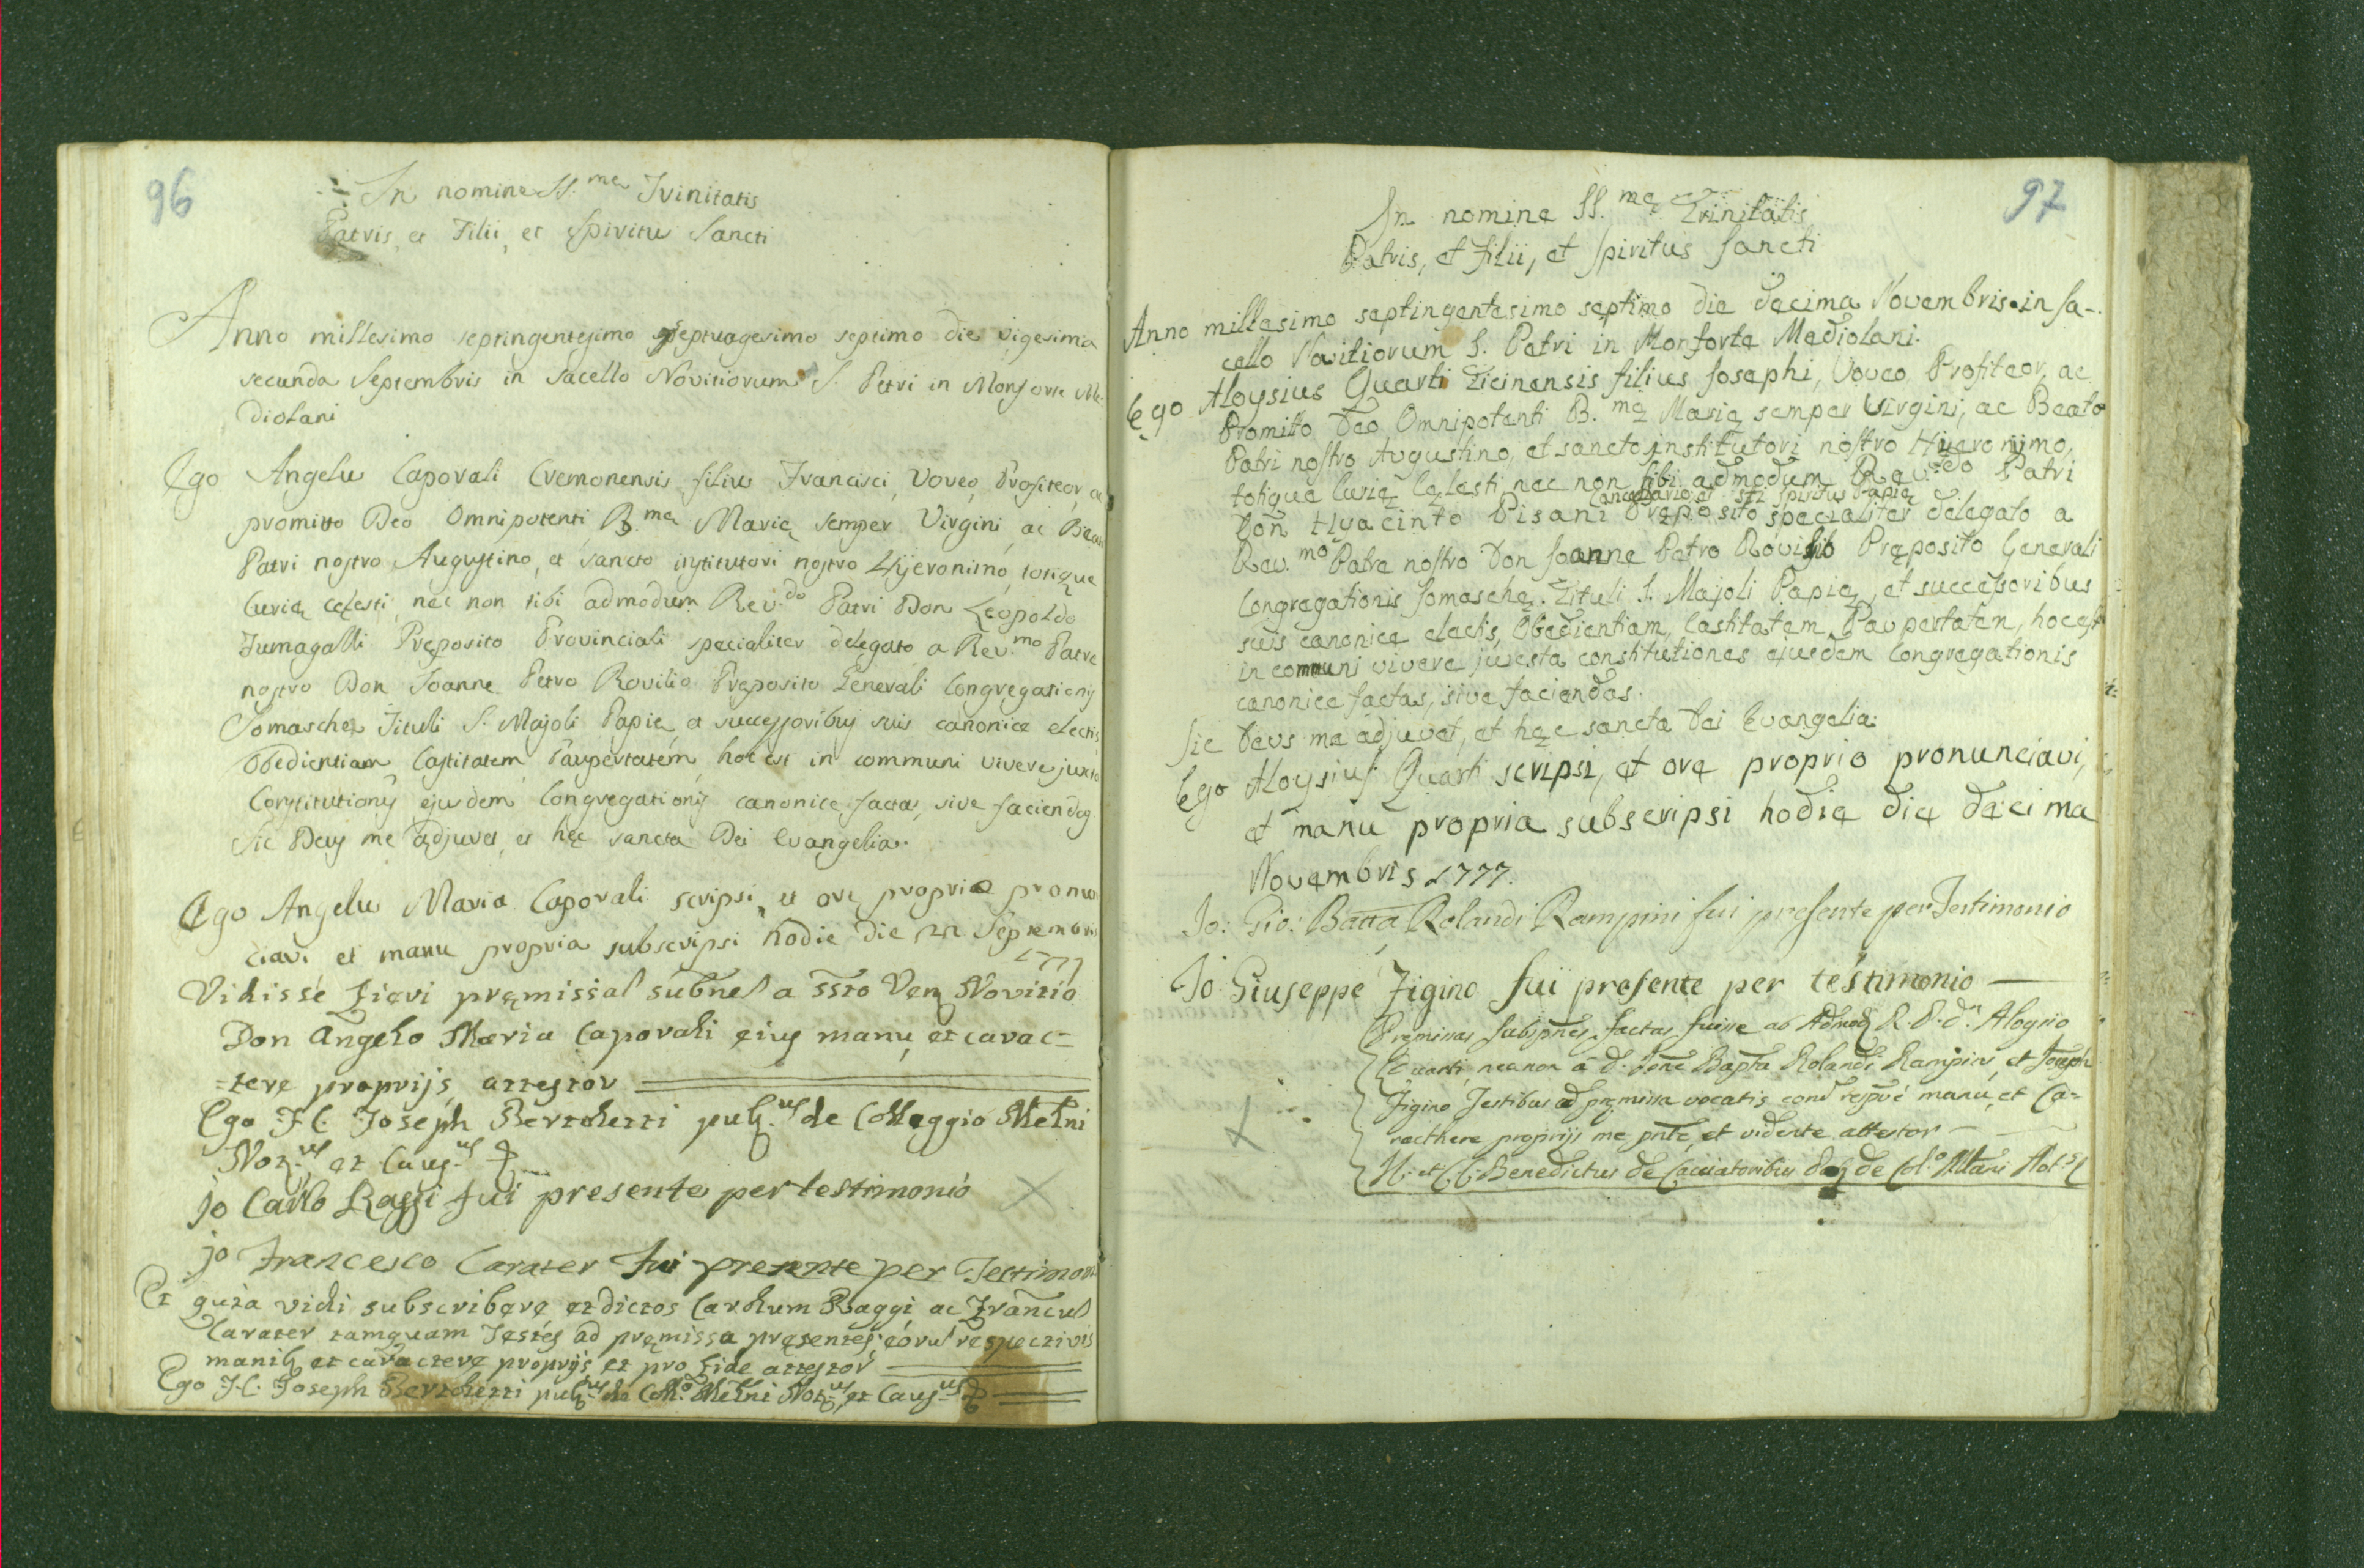 96
In nomine SS.me Trinitatis
Patris, et Filii, et Spiritus Sancti
Anno millesimo septingentesimo septuagesimo septimo die vigesima
secunda Septembris in Sacello Novitiorum S. Petri in Monforte Me-
diolani
Ego Angelus Caporali Cremonensis filius Francisci, Voveo, Profiteor, ac
promitto Deo Omnipotenti, B.mę Marię semper Virgini, ac Beato
Patri nostro Augustino, et sancto institutori nostro Hjeronimo, totique
Curię cęlesti, nec non tibi admodum Rev.do Patri Don Leopoldo
Fumagalli Pręposito Provinciali specialiter delegato a Rev.mo Patre
nostro Don Joanne Petro Rovilio Pręposito Generali Congregationis
Somaschę Tituli S. Majoli Papię, et successoribus suis canonice electis,
Obedientiam, Castitatem, Paupertatem, hoc est in communi vivere juxta
Constitutiones ejusdem Congregationis canonice factas, sive faciendas
Sic Deus me adjuvet, et hęc sancta Dei Evangelia.
Ego Angelus Maria Caporali scripsi, et ore proprio pronun
ciavi et manu propria subscripsi hodie die 22 Septembris
1777
Vidisse fieri pręmissas subnes a ssto Ven Novitio
Don Angelo Maria Caporali ejus manu, et carac=
=tere proprijs, attestor
Ego J. C. Joseph Bertoletti de Colleggio Mełni
Not. et Caus.
jo Carlo Raggi fui presente per testimonio
jo Francesco Carater fui presente per Testimoni
Et quia vidi subscribere et dictos Carolum Raggi, ac Francus
Carater tamquam Testes ad pręmissa pręsentes, eorum respectivis
manibus et caractere proprijs et pro fide attestor
Ego J. C. Joseph Bertoletti de Coll.o Mełni Not. et Caus.
97
In nomine SS.mę Trinitatis
Patris, et filii, et Spiritus Sancti
Anno millesimo septingentesimo septimo die decima Novembris in Sa-
cello Novitiorum S. Petri in Monforte Mediolani.
Ego Aloysius Quarti Ticinensis filius Josephi, Voveo Profiteor, ac
Promitto Deo Omnipotenti B.mę Marię semper Virgini, ac Beato
Patri nostro Augustino, et sancto institutori nostro Hyeronimo,
totique Curię Cęlesti nec non tibi admodum Rev.do Patri
Cancellario et Spiritus Papię
Don Hyacinto Pisani Pręposito specialiter delegato a
Rev.mo Patre nostro Don Joanne Petro Rovilio Pręposito Generali
Congregationis Somaschę. Tituli S. Majoli Papię, et successoribus
suis canonice electis, Obedientiam, Castitatem, Paupertatem, hoc est
in communi vivere juxsta constitutiones ejusdem Congregationis
canonice factas, sive faciendas.
Sic Deus me adjuvet, et hęc sancta Dei Evangelia.
Ego Aloysius Quarti scripsi, et ore proprio pronunciavi,
et manu propria subscripsi hodie die decima
Novembris 1777.
Io: Gio: Batta Rolandi Rampini fui presente per Testimonio
Io Giuseppe Figino fui presente per testimonio
Premissas factas fuisse ab R. P. d. Aloysio
Quarti, necnon a d. Bapta Rolandi Rampini, et Joseph
Figino Testibus ad pręmissa vocatis manu, et Ca=
racthere proprijs me et vidente attestor
Benedictus de Cacciatoribus de Col.o